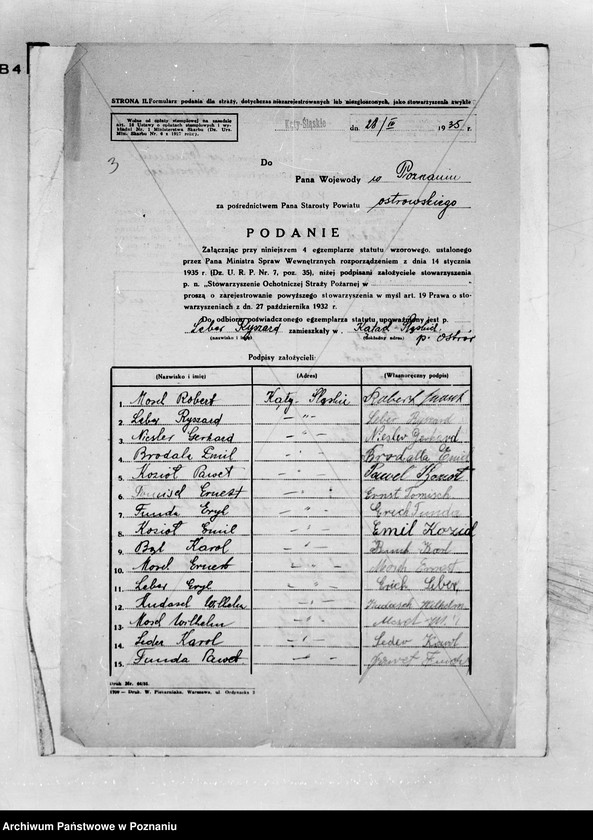 B4
STRONA II. Formularz podania dla straży, dotychczas niezarejestrowanych lub niezgłoszonych, jako stowarzyszenia zwykłe
Wolne od opłaty stemplowej na zasadzie
art. 18 Ustawy o opłatach stemplowych i wy-
Min. Skarbu Nr. 6 z 1927 roku).
Kąty-Śląskie dn. 28/IV 1935 r.
3
Do
Pana Wojewody w Poznaniu
za pośrednictwem Pana Starosty Powiatu ostrowskiego
PODANIE
Załączając przy niniejszem 4 egzemplarze statutu wzorowego, ustalonego
przez Pana Ministra Spraw Wewnętrznych rozporządzeniem z dnia 14 stycznia
1935 r. (Dz. U. R. P. Nr. 7, poz. 35), niżej podpisani założyciele stowarzyszenia
p. n. „Stowarzyszenie Ochotniczej Straży Pożarnej w
proszą o zarejestrowanie powyższego stowarzyszenia w myśl art. 19 Prawa o sto-
warzyszeniach z dn. 27 października 1932 r.
Do odbioru poświadczonego egzemplarza statutu upoważniony jest p.
Leber Ryszard zamieszkały w
(nazwisko i imię) (dokładny adres) p. Ostrów
Podpisy założycieli:
(Nazwisko i imię) (Adres) (Własnoręczny podpis)
1. Morel Robert Kąty-Śląskie Robert
2. Leber Ryszard -"- Leber Ryszard
3. Niesler Gerhard -"- Niesler Gerhard
4. Brodala Emil -"- Brodalla Emil
5. Kozioł Paweł -"- Pawel
6. Tomisch Ernest -"- Ernst Tomisch
7. Funda Eryk -"- Erich Funda
8. Kozioł Emil -"- Emil Koziol
9. Karol -"-
10. Morel Ernest -"- Ernest
11. Leber Eryk -"- Erich Leber
12. Wilhelm -"- Wilhelm
13. Morel Wilhelm -"-
14. Leder Karol -"- Leder Karol
15. Funda Paweł -"- Paweł Funda
Druk Nr. 60/35.
1709 — Druk. W. Piekarniaka, Warszawa, ul. Ordynacka 3
Archiwum Państwowe w Poznaniu